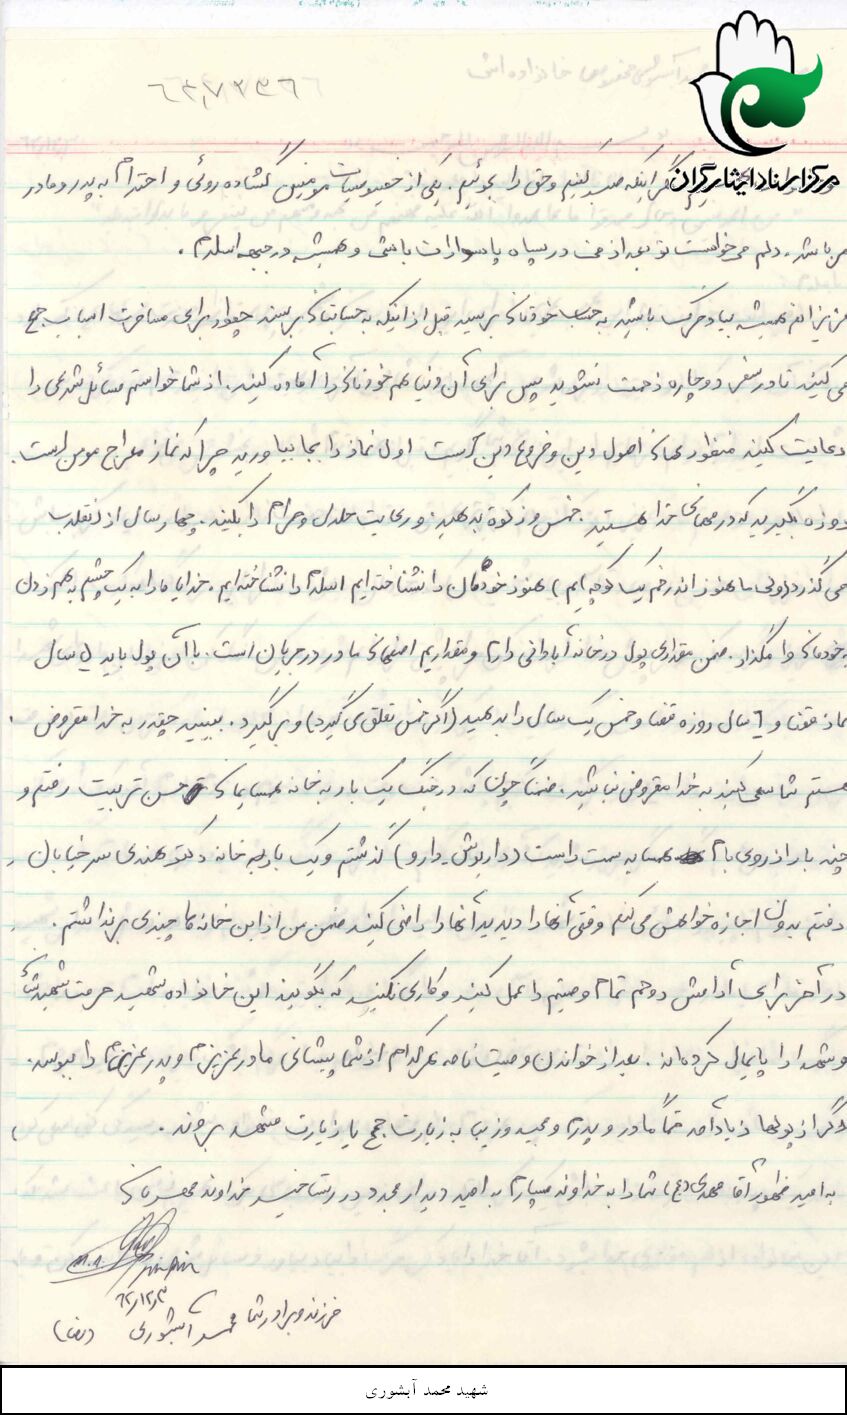 ۶۳٫۷۲۳۶۶
مرکز اسناد ایثارگران
مگر اینکه صبر کنیم و حق را بجوئیم. یکی از خصوصیات مومنین گشاده روئی و احترام به پدر و مادر
می باشد. دلم می خواست تو بعد از من در سپاه پاسدارات باشی و همیشه در جبهه اسلام.
عزیزانم همیشه بیاد مرگ باشید به حساب خودتان برسید قبل از اینکه به حسابتان برسند چطور برای مسافرت اسباب جمع
می کنید تا در سفر دوچاره زحمت نشوید پس برای آن دنیا هم خودتان را آماده کنید. از شما خواستم مسائل شرعی را
رعایت کنید منظور همان اصول دین و فروع دین است اول نماز را بجا بیاورید چرا که نماز معراج مومن است.
روزه بگیرید که در مهمانی خدا هستید. خمس و زکوة بدهید. و رعایت حلال و حرام را بکنید. چهار سال از انقلاب
می گذرد (ولی ما هنوز اندر خم یک کوچه ایم) هنوز خودمان را نشناخته ایم اسلام را نشناخته ایم. خدایا ما را به یک چشم بهم زدن
به خودمان وا مگذار. ضمن مقداری پول در خانه آبادانی دارم و مقداریم اصفهان مادر در جریان است. با آن پول باید ۵ سال
نماز قضا و ۶ سال روزه قضا و خمس یک سال را بدهید (اگر خمس تعلق می گیرد) و برگیرد. ببینید چقدر به خدا مقروض
هستم شما سعی کنید به خدا مقروض نباشید. ضمناً چون که در جنگ یک بار به خانه همسایمان حسن تربیت رفتم و
چند بار از روی بام همسایه سمت راست (داریوش دارو) گذشتم و یک بار به خانه دکتر هندی سر خیابان
رفتم بدون اجازه خواهش می کنم وقتی آنها را دیدید آنها را راضی کنید ضمن من از این خانه ها چیزی برنداشتم.
در آخر برای آرامش روحم تمام وصیتم را عمل کنید و کاری نکنید که بگویند این خانواده شهید حرمت شهیدشان
و شهدا را پایمال کرده اند. بعد از خواندن وصیت نامه هر کدام از شما پیشانی مادر عزیزم و پدر عزیزم را ببوسد.
اگر از پولها زیاد آمد حتماً مادر و پدرم و مجید و زیبا به زیارت حج یا زیارت مشهد بروند.
به امید ظهور آقا مهدی (عج) شما را به خداوند می سپارم به امید دیدار مجدد در رستاخیز خداوند مهربان
M.A.
۶۲٫۱۲٫۳
فرزند و برادر شما محمد آبشوری
شهید محمد آبشوری